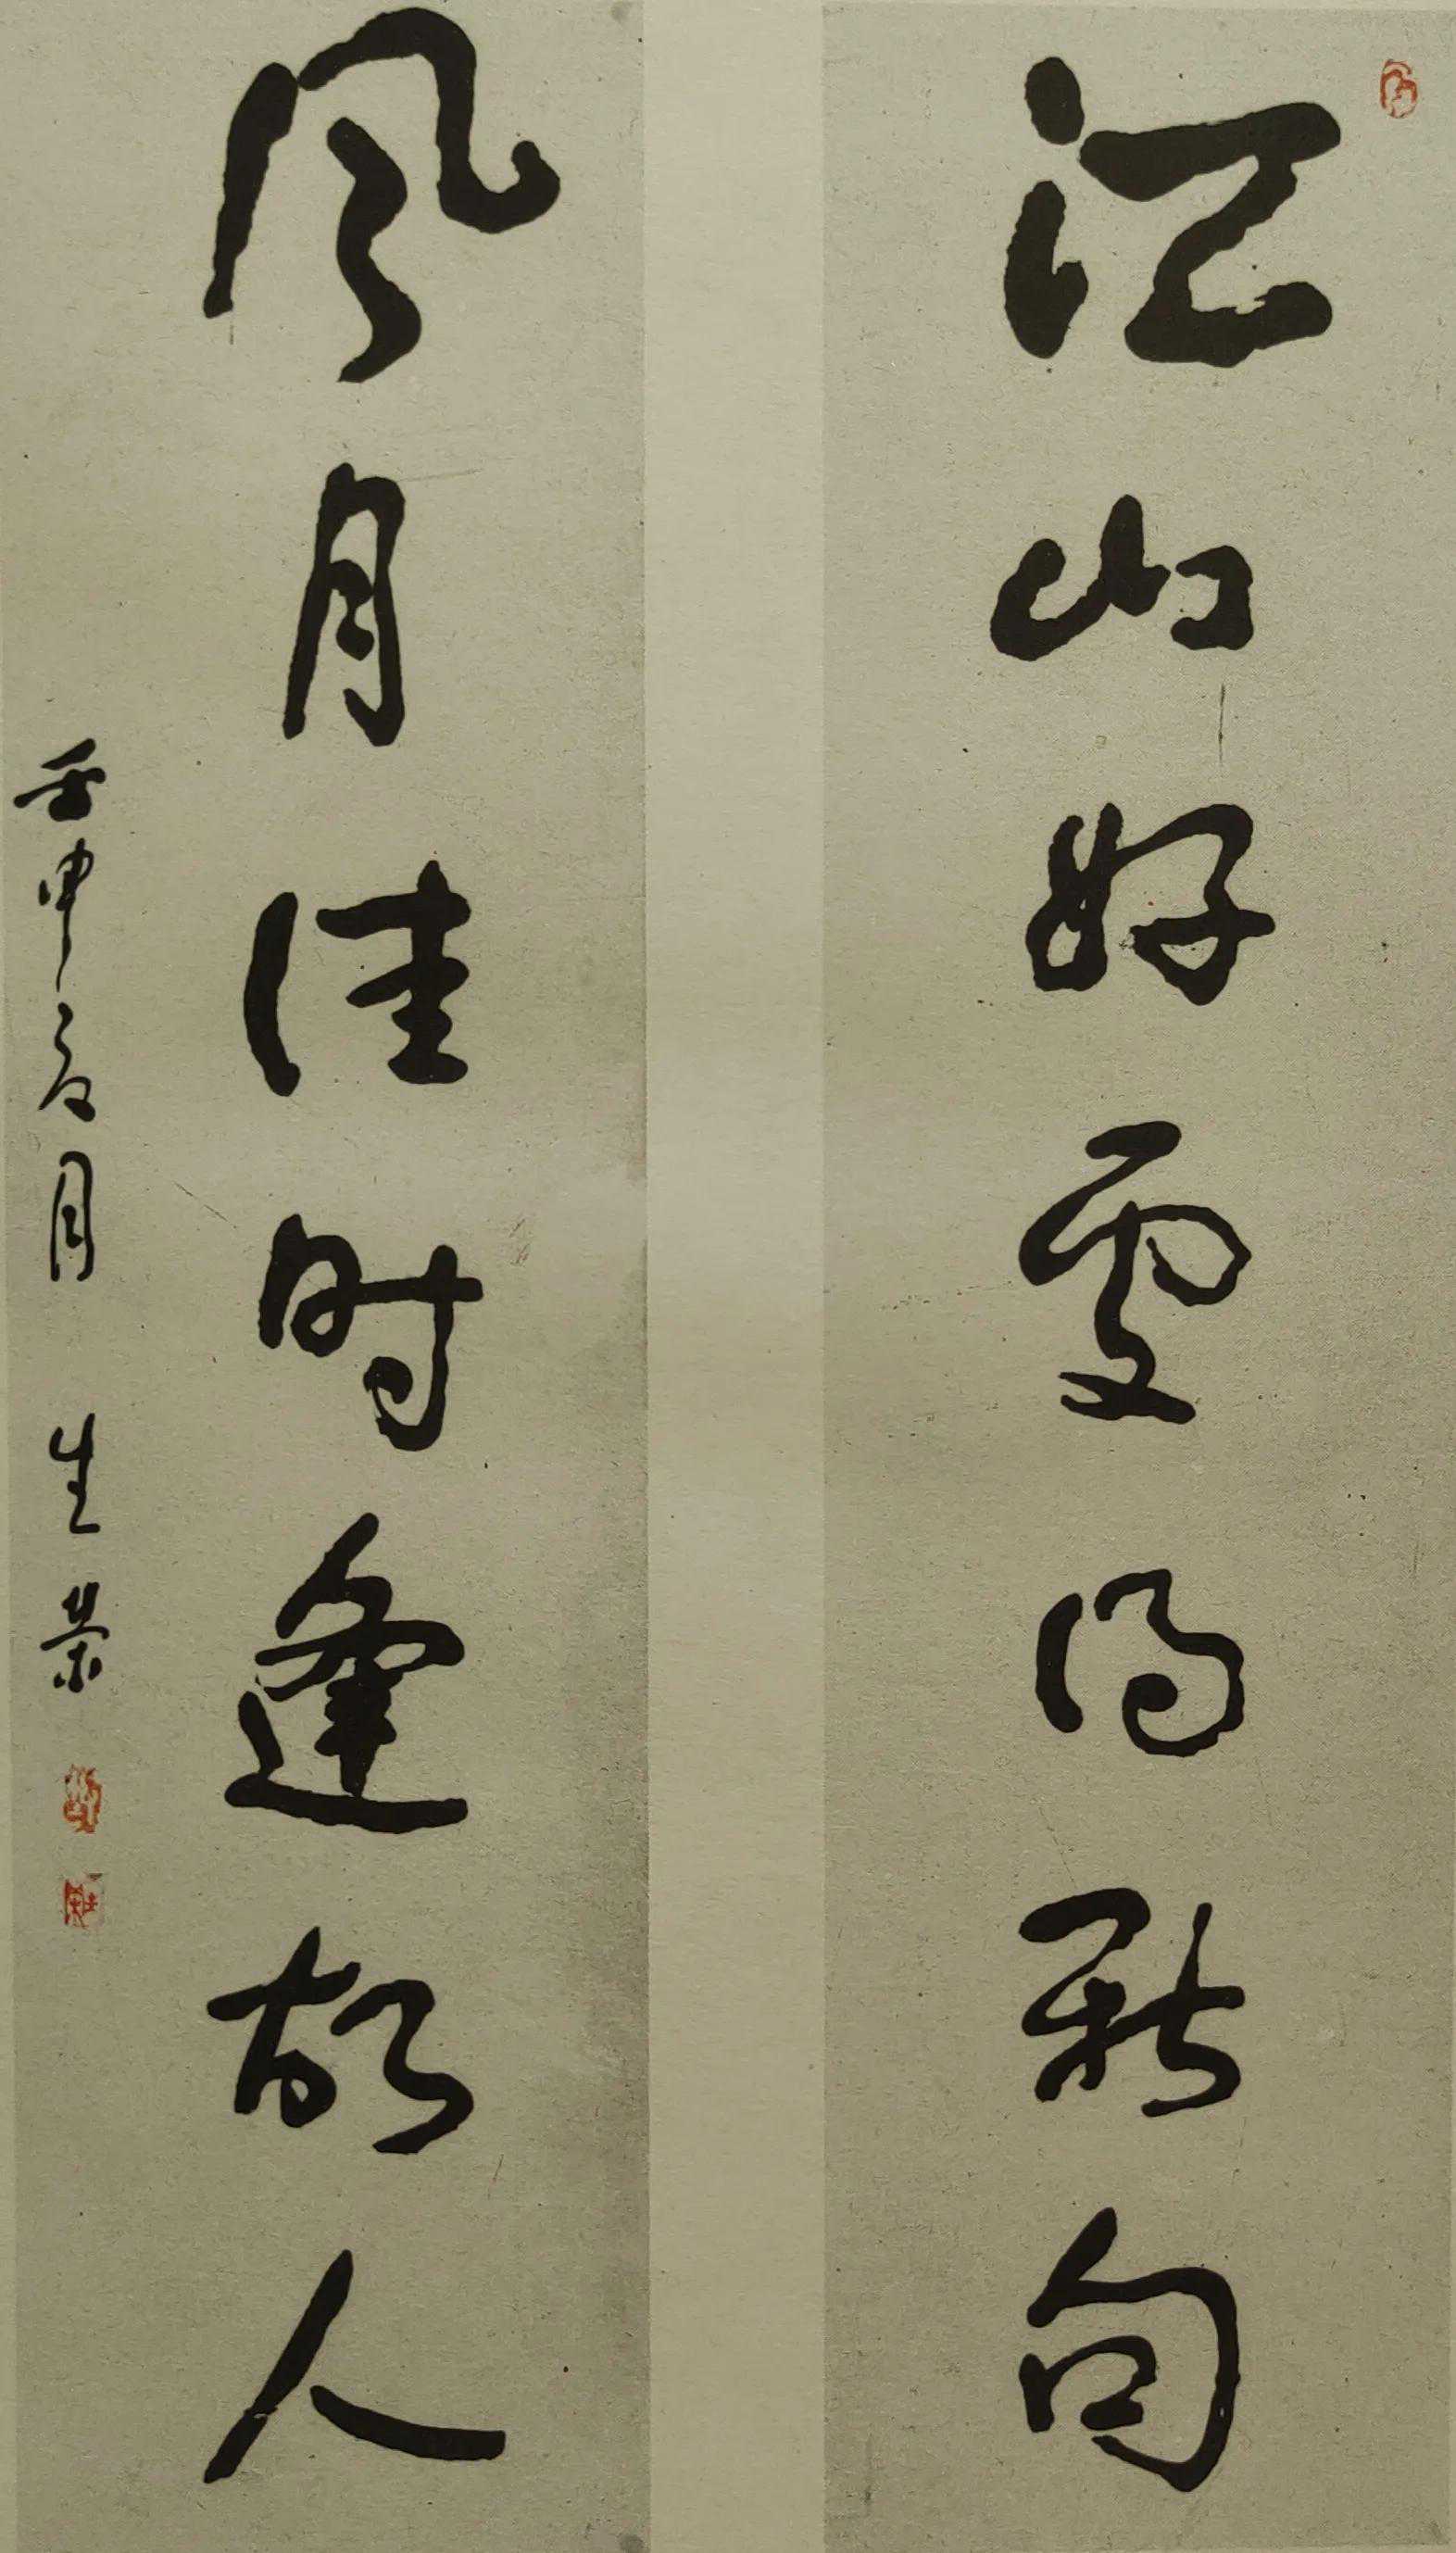 江山好处得新句
风月佳时逢故人
壬申夏月 生荣